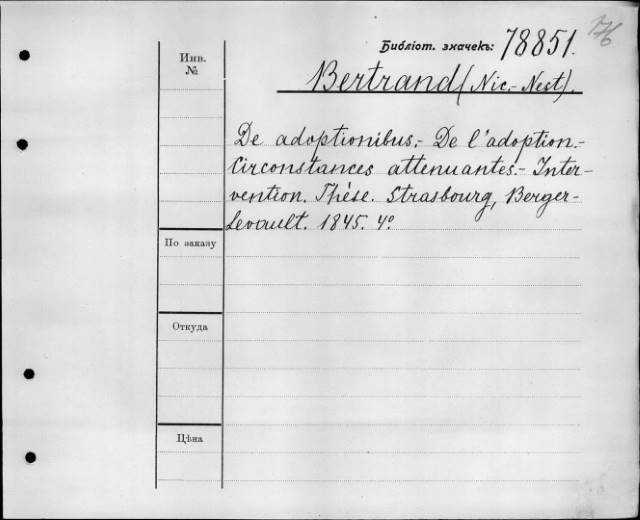 Библіот. значекъ: 78851.
Инв.
№
Bertrand (Nic.-Nest).
De adoptionibus.- De l'adoption.-
Circonstances attenuantes.- Inter-
vention. Thèse. Strasbourg, Berger-
Levrault. 1845. 4°
По заказу
Откуда
Цѣна